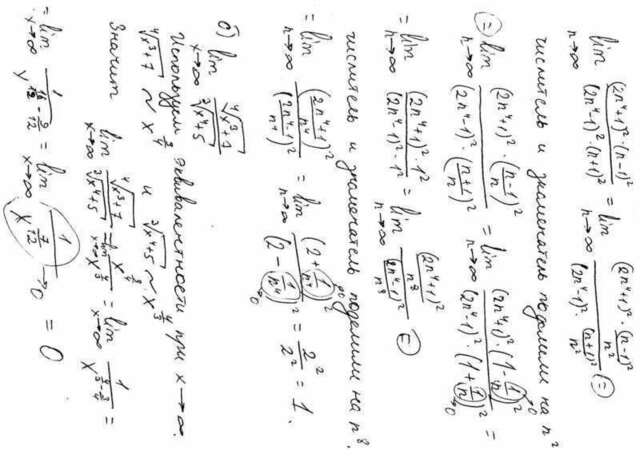 lim n→∞ (2n⁴+1)²·(n-1)² / (2n⁴-1)²·(n+1)² = lim n→∞ (2n⁴+1)²·(n-1)²/n² / (2n⁴-1)²·(n+1)²/n² (=)
числитель и знаменатель поделили на n²
(=) lim n→∞ (2n⁴+1)²·((n-1)/n)² / (2n⁴-1)²·((n+1)/n)² = lim n→∞ (2n⁴+1)²·(1-1/n)² / (2n⁴-1)²·(1+1/n)² =
= lim n→∞ (2n⁴+1)²·1² / (2n⁴-1)²·1² = lim n→∞ (2n⁴+1)²/n⁸ / (2n⁴-1)²/n⁸ (=)
числитель и знаменатель поделили на n⁸.
= lim n→∞ ((2n⁴+1)/n⁴)² / ((2n⁴-1)/n⁴)² = lim n→∞ (2+1/n⁴)² / (2-1/n⁴)² = 2²/2² = 1.
б) lim x→∞ ⁴√(x³+7) / ³√(x⁴+5)
Используем эквивалентности при x→∞.
⁴√(x³+7) ~ x^(3/4) и ³√(x⁴+5) ~ x^(4/3)
Значит lim x→∞ ⁴√(x³+7) / ³√(x⁴+5) = lim x→∞ x^(3/4) / x^(4/3) = lim x→∞ 1 / x^(4/3-3/4) =
= lim x→∞ 1 / x^(16/12-9/12) = lim x→∞ 1 / x^(7/12) →0 = 0